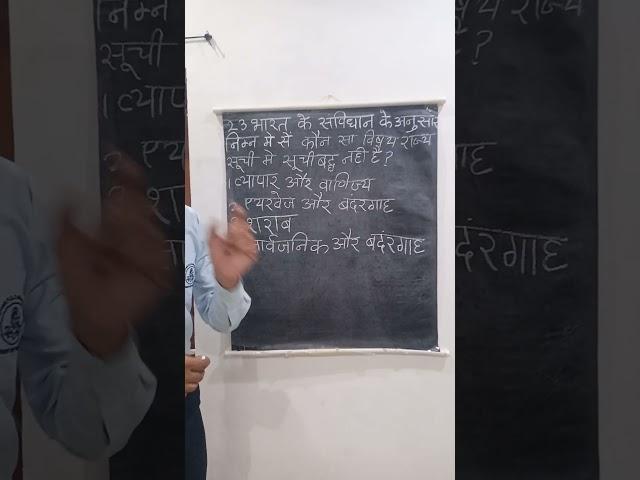 23 भारत के संविधान के अनुसार
निम्न मे से कौन सा विषय राज्य
सूची मे सूचीबद्ध नही है?
1 व्यापार और वाणिज्य
2 एयरवेज और बंदरगाह
3 शराब
सार्वजनिक और बदंरगाह